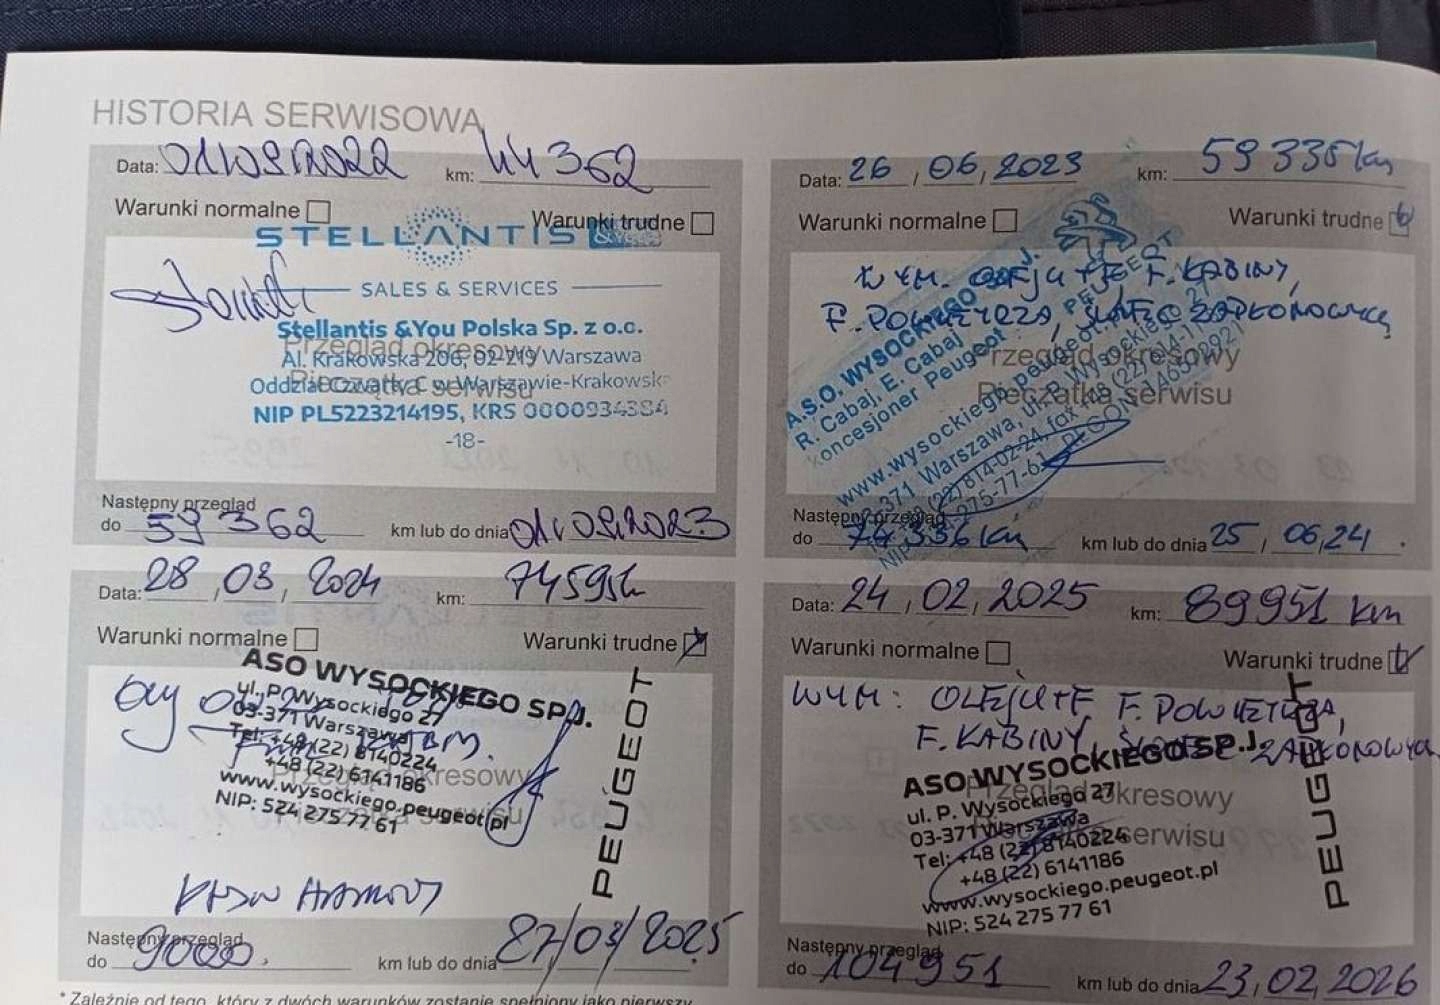 HISTORIA SERWISOWA
Data: 01.09.2022 km: 44 362
Warunki normalne Warunki trudne
STELLANTIS &You
SALES & SERVICES
Stellantis &You Polska Sp. z o.o.
Przegląd okresowy
Al. Krakowska 206, 02-219 Warszawa
Pieczątka serwisu
Oddział Czwarty w Warszawie-Krakowska
NIP PL5223214195, KRS 0000934384
-18-
Następny przegląd
do 59 362 km lub do dnia 01.09.2023
Data: 26 / 06 / 2023 km: 59 336 km
Warunki normalne Warunki trudne
WYM. OLEJU+FE F. KABINY,
F. POWIETRZA, ŚWIEC ZAPŁONOWYCH
A.S.O. WYSOCKIEGO S.J.
R. Cabaj, E. Cabaj
koncesjoner Peugeot
PEUGEOT
www.wysockiego.peugeot.pl
03-371 Warszawa, ul. P. Wysockiego 27
(22) 814-02-24, fax
Przegląd okresowy
Pieczątka serwisu
Następny przegląd
do 74 336 km km lub do dnia 25 / 06.24
Data: 28 / 03 / 2024 km: 74595
Warunki normalne Warunki trudne
ASO WYSOCKIEGO SP.J.
ul. P. Wysockiego 27
03-371 Warszawa
Tel: +48 (22) 8140224
+48 (22) 6141186
www.wysockiego.peugeot.pl
NIP: 524 275 77 61
PEUGEOT
Przegląd okresowy
serwisu
Następny przegląd
do 90000 km lub do dnia 27/03/2025
Data: 24 / 02 / 2025 km: 89951 km
Warunki normalne Warunki trudne
WYM: OLEJU+FE F. POWIETRZA,
F. KABINY, ŚWIEC ZAPŁONOWYCH
ASO WYSOCKIEGO SP.J.
ul. P. Wysockiego 27
03-371 Warszawa
Tel: +48 (22) 8140224
+48 (22) 6141186
www.wysockiego.peugeot.pl
NIP: 524 275 77 61
PEUGEOT
Przegląd okresowy
serwisu
Następny przegląd
do 104 951 km lub do dnia 23.02.2026
* Zależnie od tego, który z dwóch warunków zostanie spełniony jako pierwszy